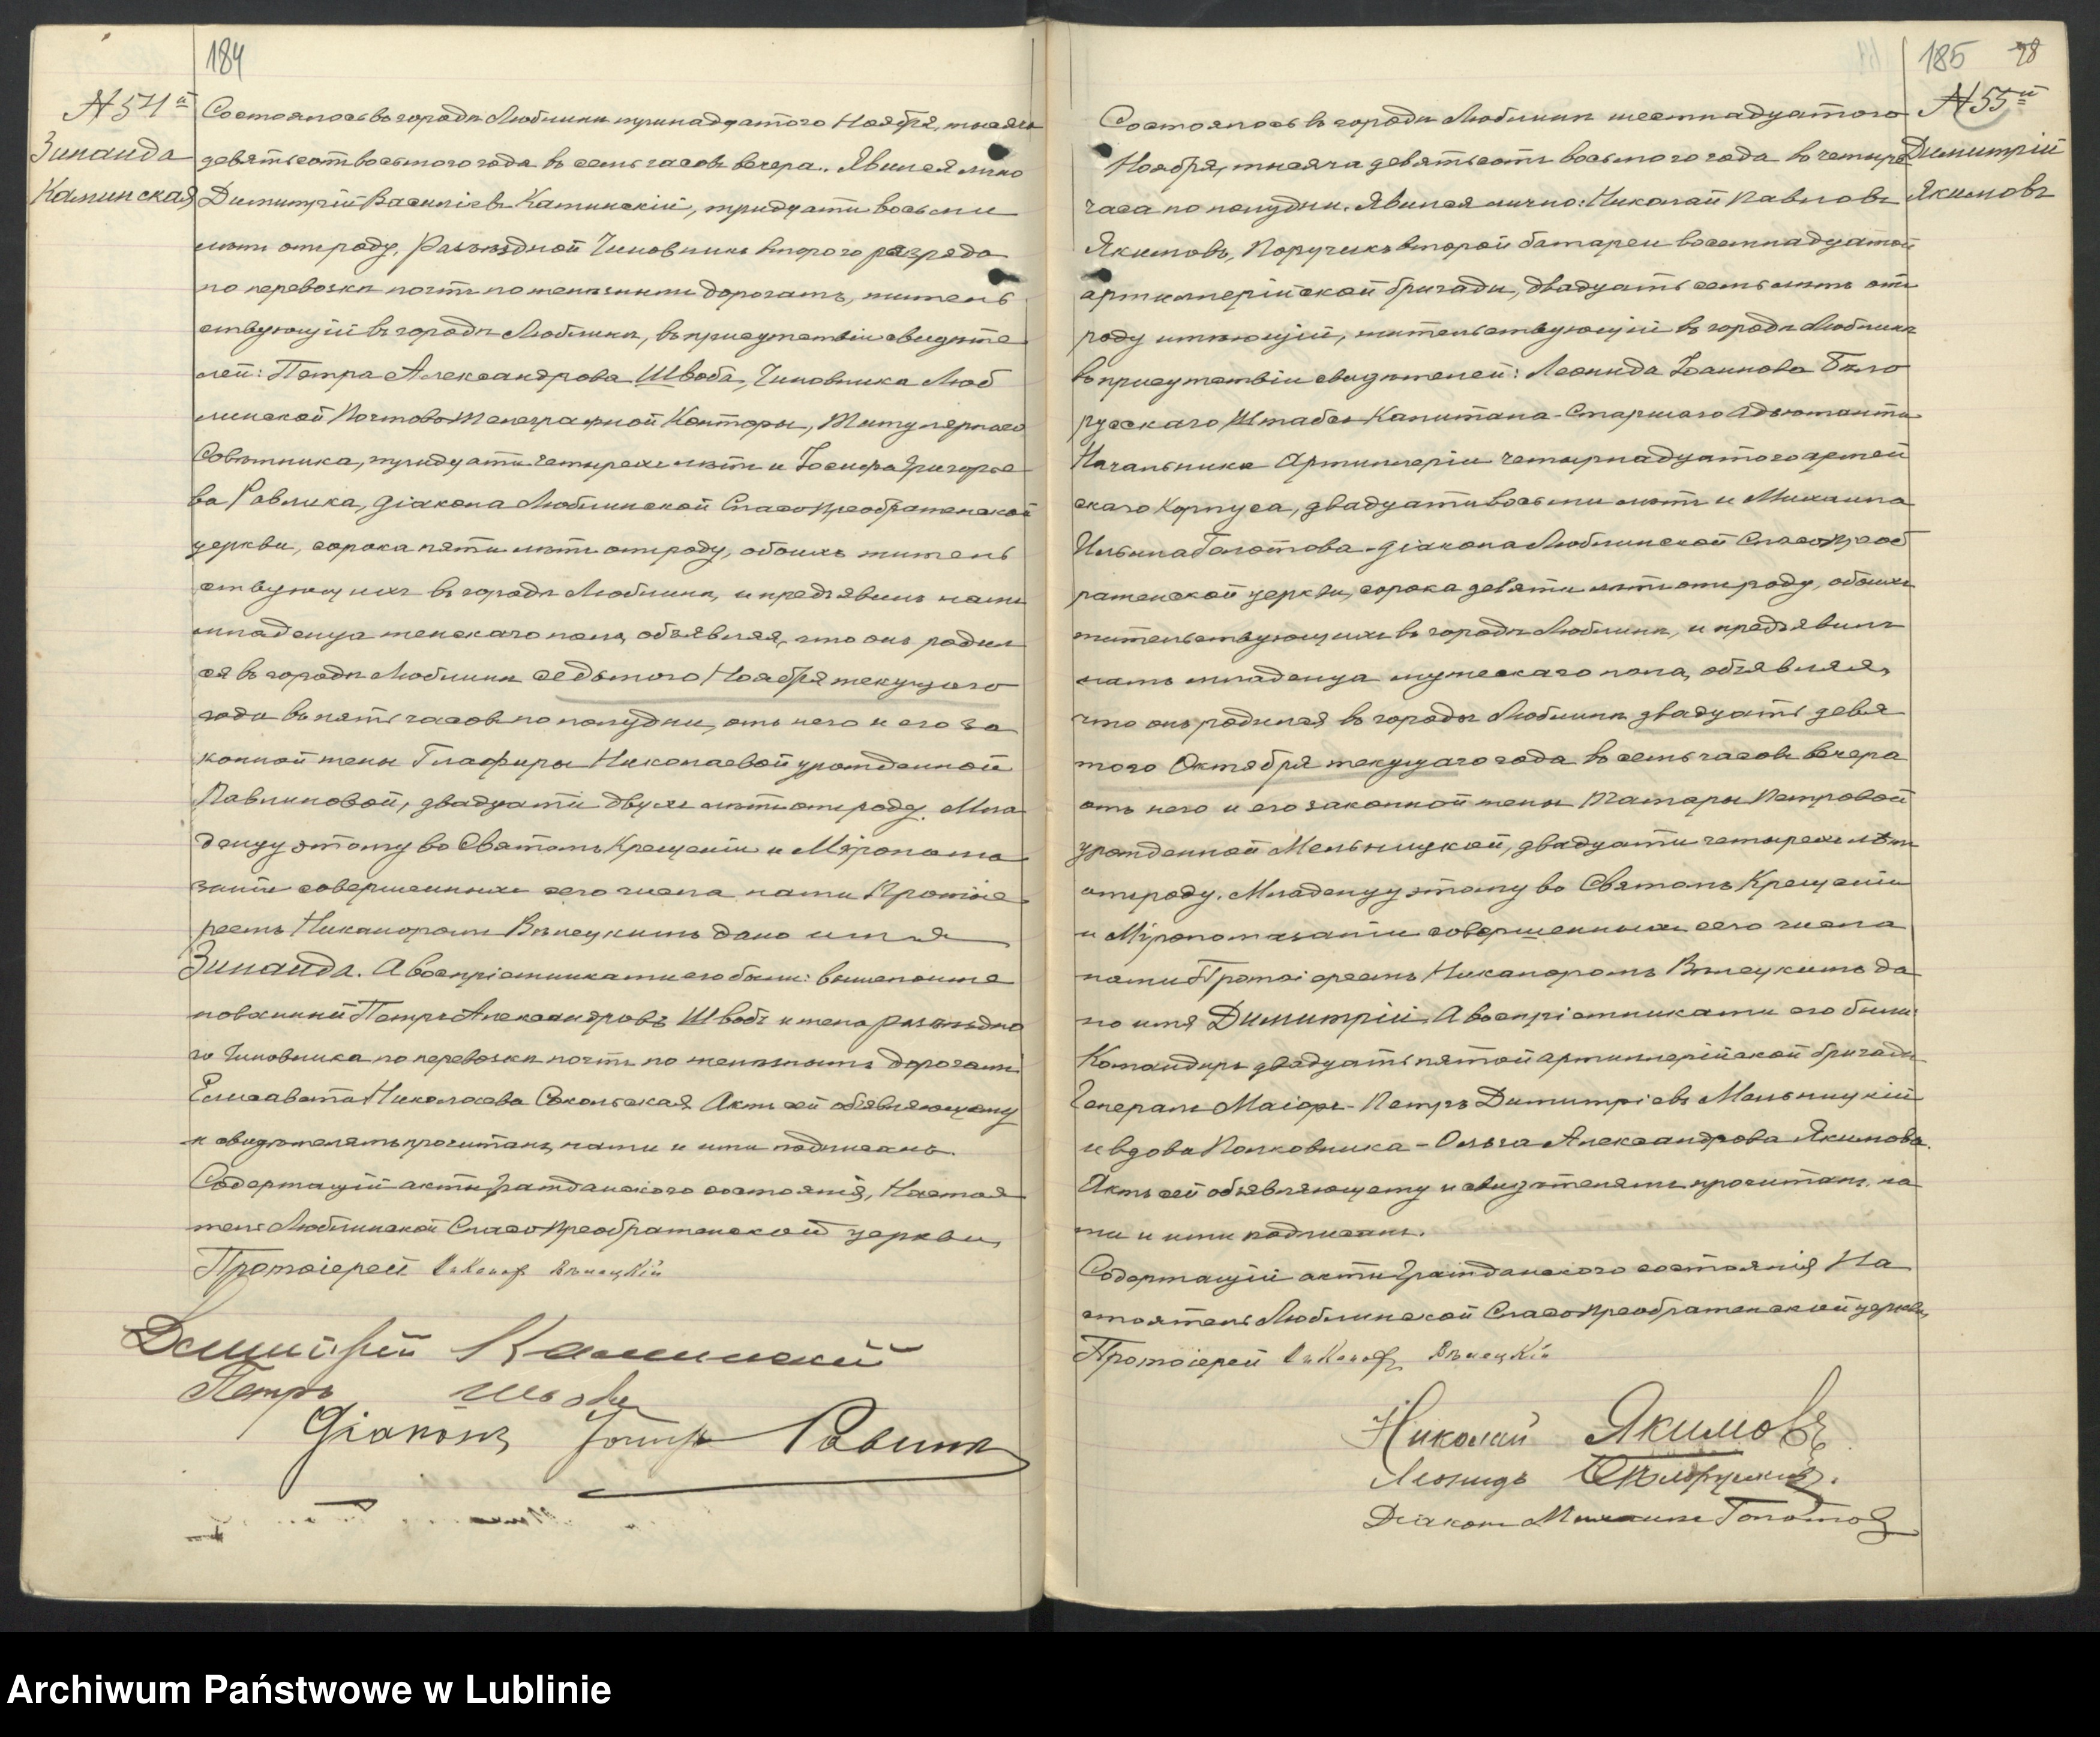 184
№ 54й
Зинаида
Каминская
Состоялось въ городѣ Люблинѣ тринадцатаго Ноября, тысяча
девятьсотъ восьмого года въ семь часовъ вечера. Явился лично
Димитрій Василіевъ Каминскій, тридцати восьми
лѣтъ отъ роду, Разъѣздной Чиновникъ второго разряда
по перевозкѣ почтъ по желѣзнымъ дорогамъ, житель
ствующій въ городѣ Люблинѣ, въ присутствіи свидѣте
лей: Петра Александрова Швоба, Чиновника Люб
линской Почтово Телеграфной Конторы, Титулярнаго
Совѣтника, тридцати четырехъ лѣтъ и Іосифа Григорье
ва Равлика, діакона Люблинской Спасо Преображенской
церкви, сорока пяти лѣтъ отъ роду, обоихъ житель
ствующихъ въ городѣ Люблинѣ, и предъявилъ намъ
младенца женскаго пола, объявляя, что онъ родил
ся въ городѣ Люблинѣ седьмого Ноября текущаго
года въ пять часовъ по полудни, отъ него и его за
конной жены Глафиры Николаевой урожденной
Павлиновой, двадцати двухъ лѣтъ отъ роду. Мла
денцу этому во Святомъ Крещеніи и Мѵропома
заніи совершенныхъ сего числа нами Протоіе
реемъ Никаноромъ Вѣнецкимъ дано имя
Зинаида. А воспріемниками его были: вышепоиме
нованный Петръ Александровъ Швобъ и жена разъѣздно
го Чиновника по перевозкѣ почтъ по желѣзнымъ дорогамъ
Елисавета Николаева Сокольская. Актъ сей объявляющему
и свидѣтелямъ прочитанъ, нами и ими подписанъ.
Содержащій акты гражданскаго состоянія, Настоя
тель Люблинской Спасо Преображенской церкви,
Протоіерей Никаноръ Вѣнецкій
Димитрій Каминскій
Петръ Швобъ
Діаконъ Іосифъ Равликъ
185 98
№ 55й
Димитрій
Якимовъ
Состоялось въ городѣ Люблинѣ шестнадцатаго
Ноября, тысяча девятьсотъ восьмого года въ четыре
часа по полудни. Явился лично: Николай Павловъ
Якимовъ, Поручикъ второй батареи восемнадцатой
артиллерійской бригады, двадцать семь лѣтъ отъ
роду имѣющій, жительствующій въ городѣ Люблинѣ
въ присутствіи свидѣтелей: Леонида Іоаннова Бѣло
русскаго Штабсъ Капитана - Старшаго Адъютанта
Начальника Артиллеріи четырнадцатого армей
скаго Корпуса, двадцати восьми лѣтъ и Михаила
Ильина Голотова - діакона Люблинской Спасо Преоб
раженской церкви, сорока девяти лѣтъ отъ роду, обоихъ
жительствующихъ въ городѣ Люблинѣ, и предъявилъ
намъ младенца мужескаго пола, объявляя,
что онъ родился въ городѣ Люблинѣ двадцать девя
таго Октября текущаго года въ семь часовъ вечера
отъ него и его законной жены Тамары Петровой
урожденной Мельницкой, двадцати четырехъ лѣтъ
отъ роду. Младенцу этому во Святомъ Крещеніи
и Мѵропомазаніи совершенныхъ сего числа
нами Протоіереемъ Никаноромъ Вѣнецкимъ да
но имя Димитрій. А воспріемниками его были:
Командиръ двадцать пятой артиллерійской бригады
Генералъ Маіоръ - Петръ Димитріевъ Мельницкій
и вдова Полковника - Ольга Александрова Якимова.
Актъ сей объявляющему и свидѣтелямъ прочитанъ, на
ми и ими подписанъ.
Содержащій акты гражданскаго состоянія На
стоятель Люблинской Спасо Преображенской церкви,
Протоіерей Никаноръ Вѣнецкій
Николай Якимовъ
Леонидъ Бѣлорусскій.
Діаконъ Михаилъ Голотовъ
Archiwum Państwowe w Lublinie